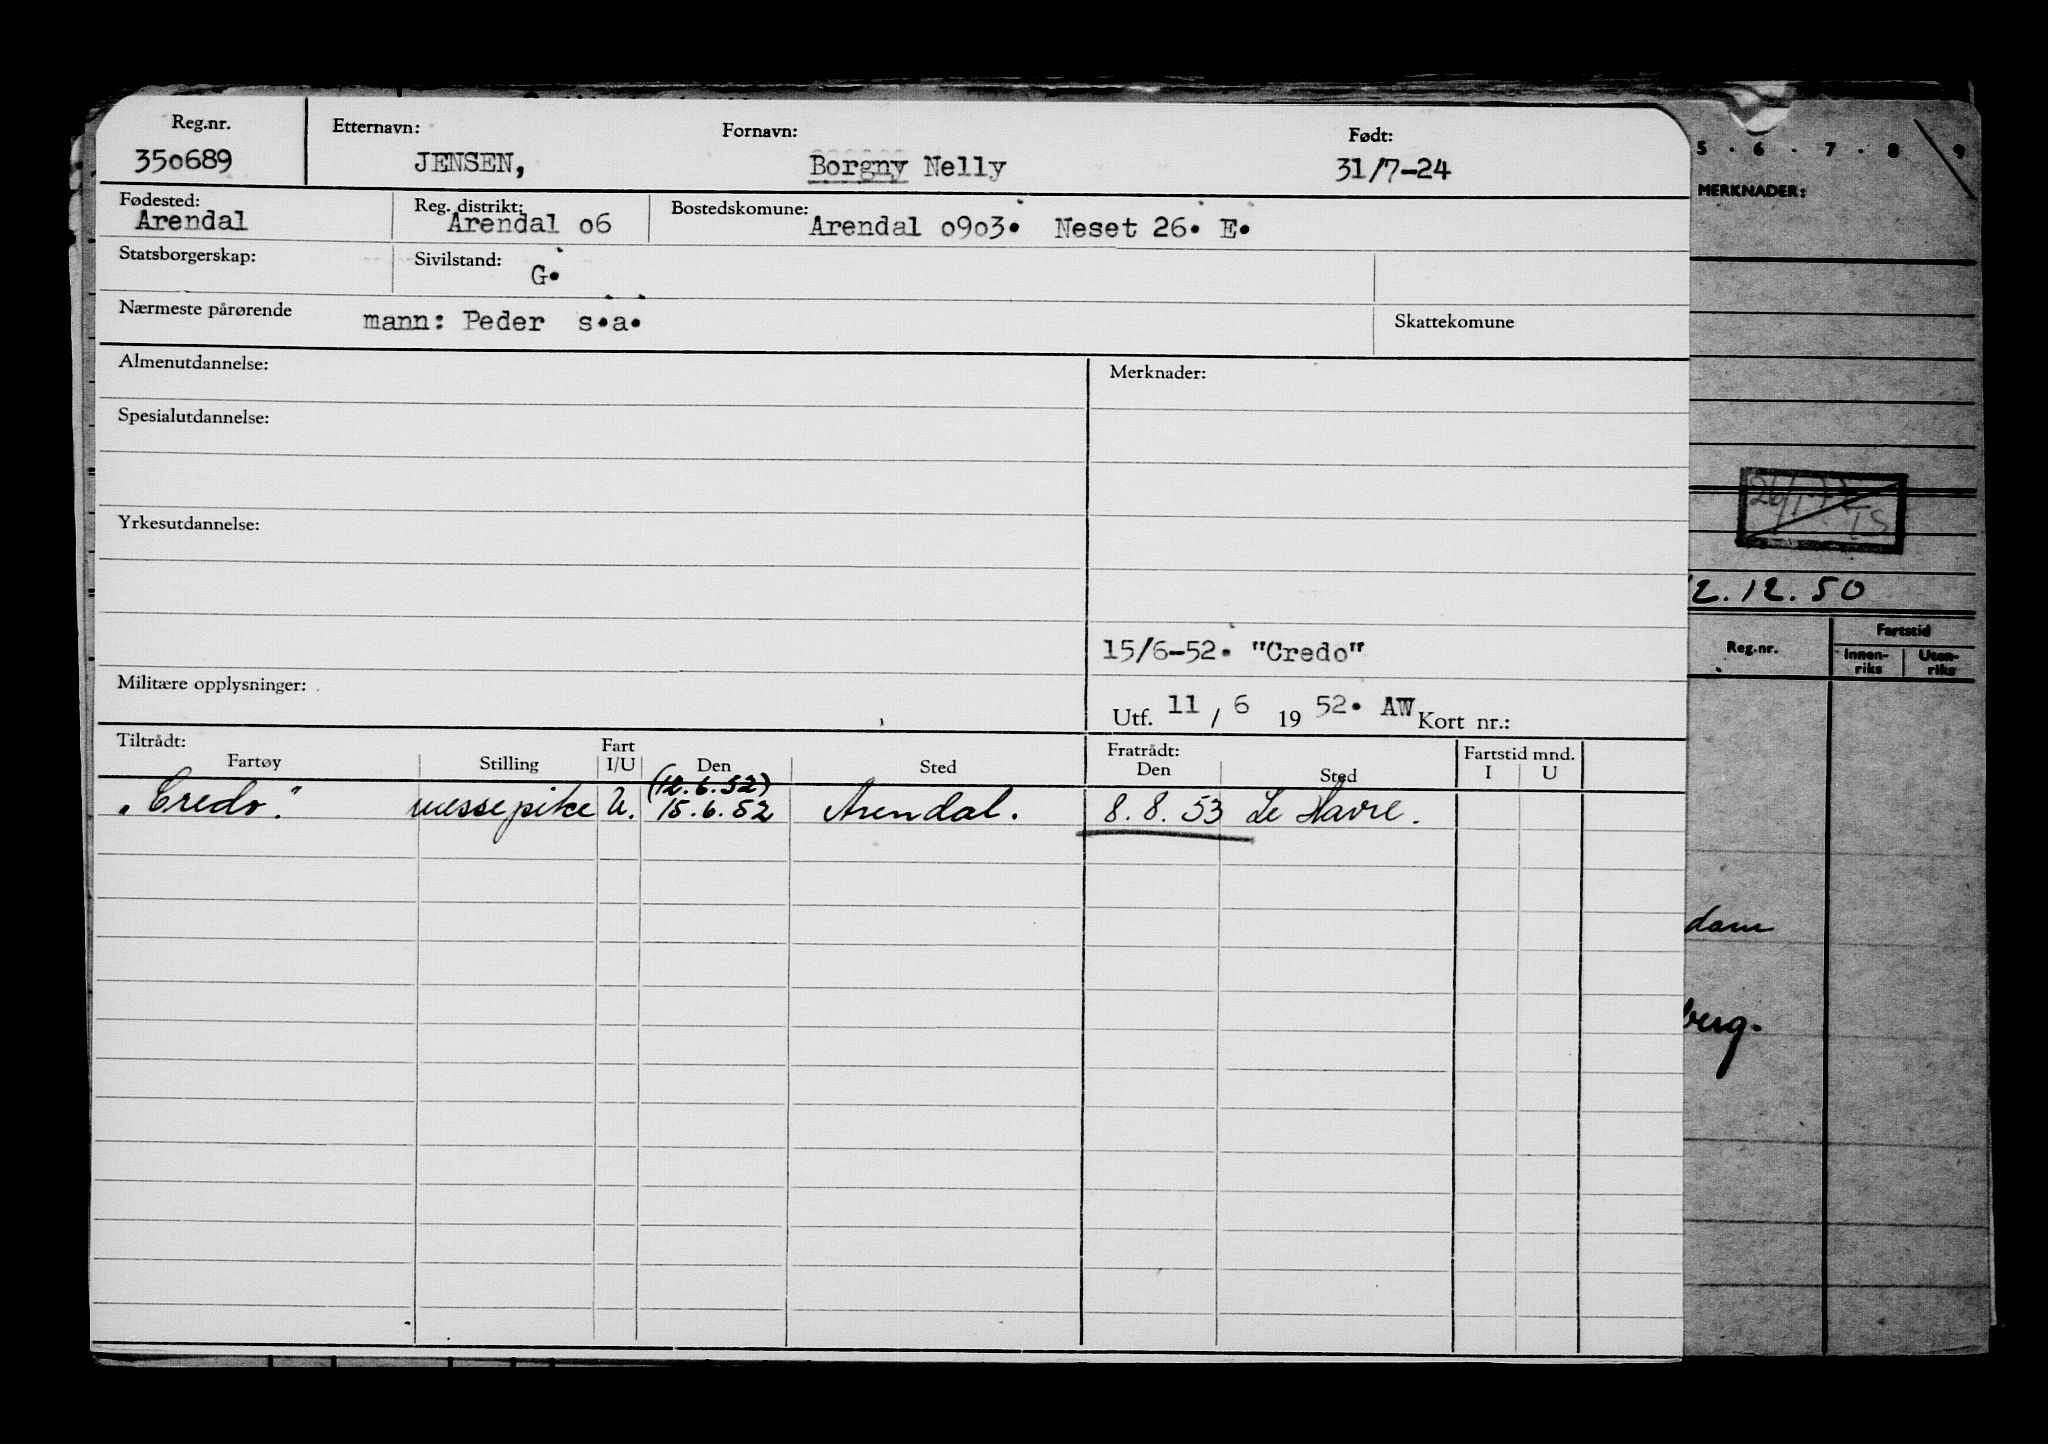 Reg.nr. Etternavn: Fornavn: Født:
350689 JENSEN, Borgny Nelly 31/7-24
Fødested: Reg. distrikt: Bostedskomune:
Arendal Arendal 06 Arendal 0903. Neset 26. E.
Statsborgerskap: Sivilstand: G.
Nærmeste pårørende mann: Peder s.a. Skattekomune
Almenutdannelse: Merknader:
Spesialutdannelse:
Yrkesutdannelse:
15/6-52. "Credo"
Militære opplysninger: Utf. 11 / 6 19 52. AW Kort nr.:
Tiltrådt: Fratrådt: Fartstid mnd.
Fartøy Stilling Fart I/U Den Sted Den Sted I U
(12.6.52)
"Credo." messepike U. 15.6.52 Arendal. 8.8.53 Le Havre.
5 . 6 . 7 . 8 9
MERKNADER:
2.12.50
Reg.nr. Fartstid
Innen-riks Uten-riks
dam
berg.